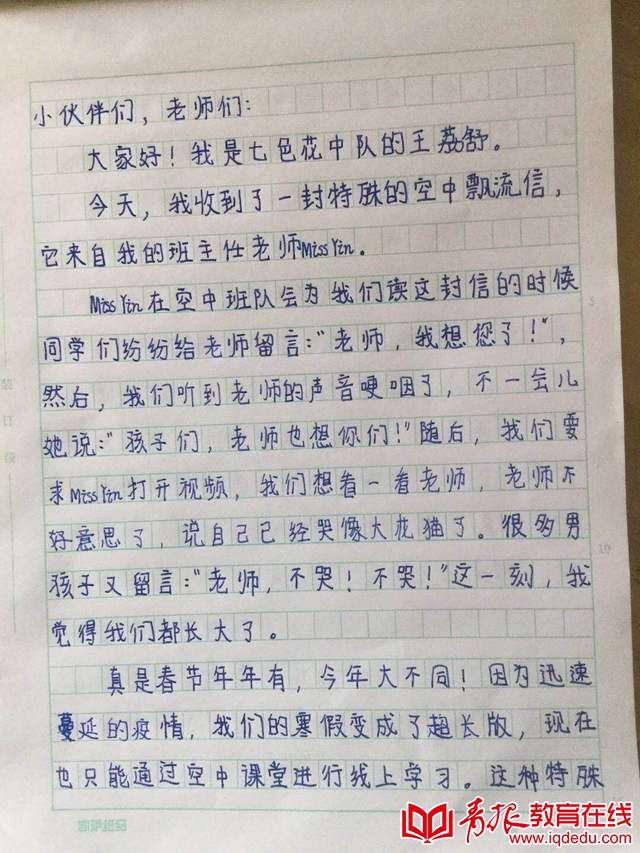 小伙伴们，老师们：
大家好！我是七色花中队的王荔舒。
今天，我收到了一封特殊的空中飘流信，
它来自我的班主任老师Miss Yin。
Miss Yin在空中班队会为我们读这封信的时候
同学们纷纷给老师留言：“老师，我想您了！”，
然后，我们听到老师的声音哽咽了，不一会儿
她说：“孩子们，老师也想你们！”随后，我们要
求Miss Yin打开视频，我们想看一看老师，老师不
好意思了，说自己已经哭像大花猫了。很多男
孩子又留言：“老师，不哭！不哭！”这一刻，我
觉得我们都长大了。
真是春节年年有，今年大不同！因为迅速
蔓延的疫情，我们的寒假变成了超长版，现在
也只能通过空中课堂进行线上学习。这种特殊
5
10
装 订 线
青报教育在线
www.iqdedu.com